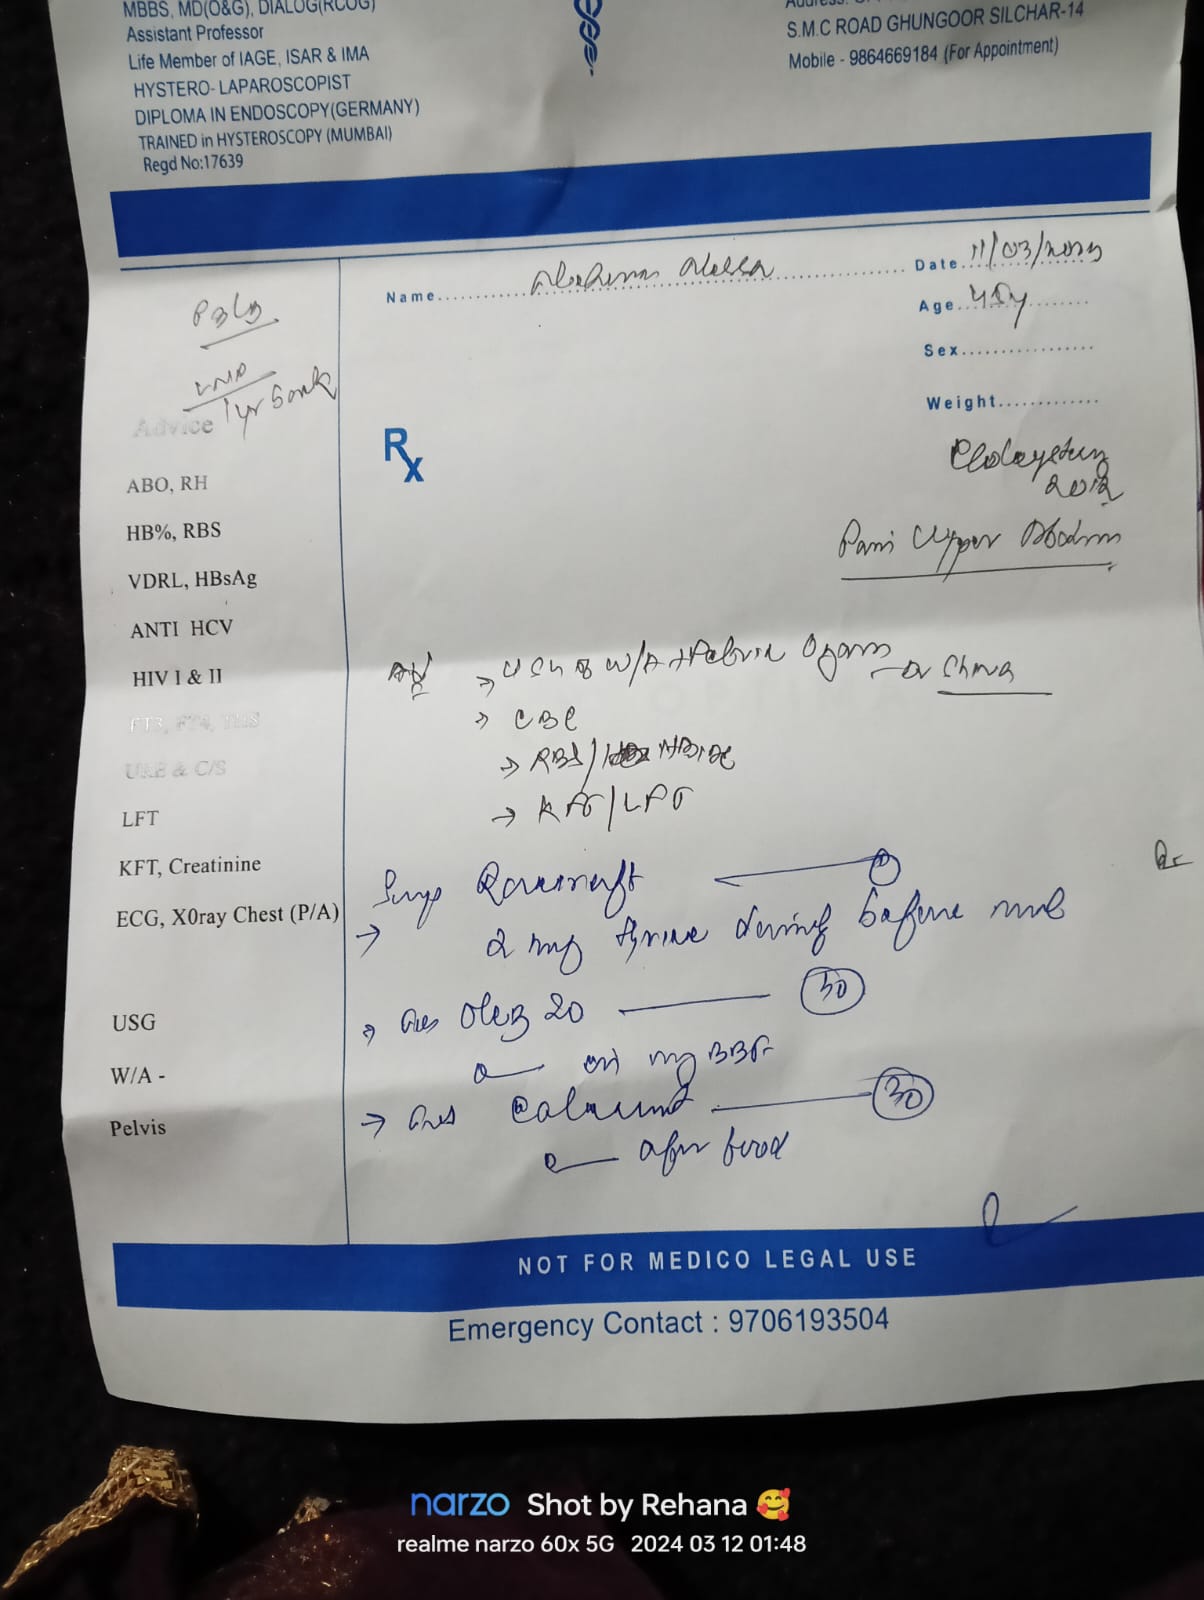 MBBS, MD(O&G), DIALOG(RCOG)
Assistant Professor
Life Member of IAGE, ISAR & IMA
HYSTERO- LAPAROSCOPIST
DIPLOMA IN ENDOSCOPY(GERMANY)
TRAINED in HYSTEROSCOPY (MUMBAI)
Regd No:17639
S.M.C ROAD GHUNGOOR SILCHAR-14
Mobile - 9864669184 (For Appointment)
Name
Date 11/03/
Age 45y
Sex
Weight
P3L3
LMP
1yr 5 back
Advice
Rx
2012
Pain Upper Abdomen
ABO, RH
HB%, RBS
VDRL, HBsAg
ANTI HCV
HIV I & II
FT3, FT4, TSH
URE & C/S
LFT
KFT, Creatinine
ECG, X0ray Chest (P/A)
USG
W/A -
Pelvis
→ USG of W/A + Pelvic Organs
→ CBC
→ RBS/ HBA1C
→ KFT/LFT
Syrp
→ 2 tsf thrice daily before meal
→ 20 30
on BBF
→ 30
after food
NOT FOR MEDICO LEGAL USE
Emergency Contact : 9706193504
narzo Shot by Rehana 🥰
realme narzo 60x 5G 2024 03 12 01:48